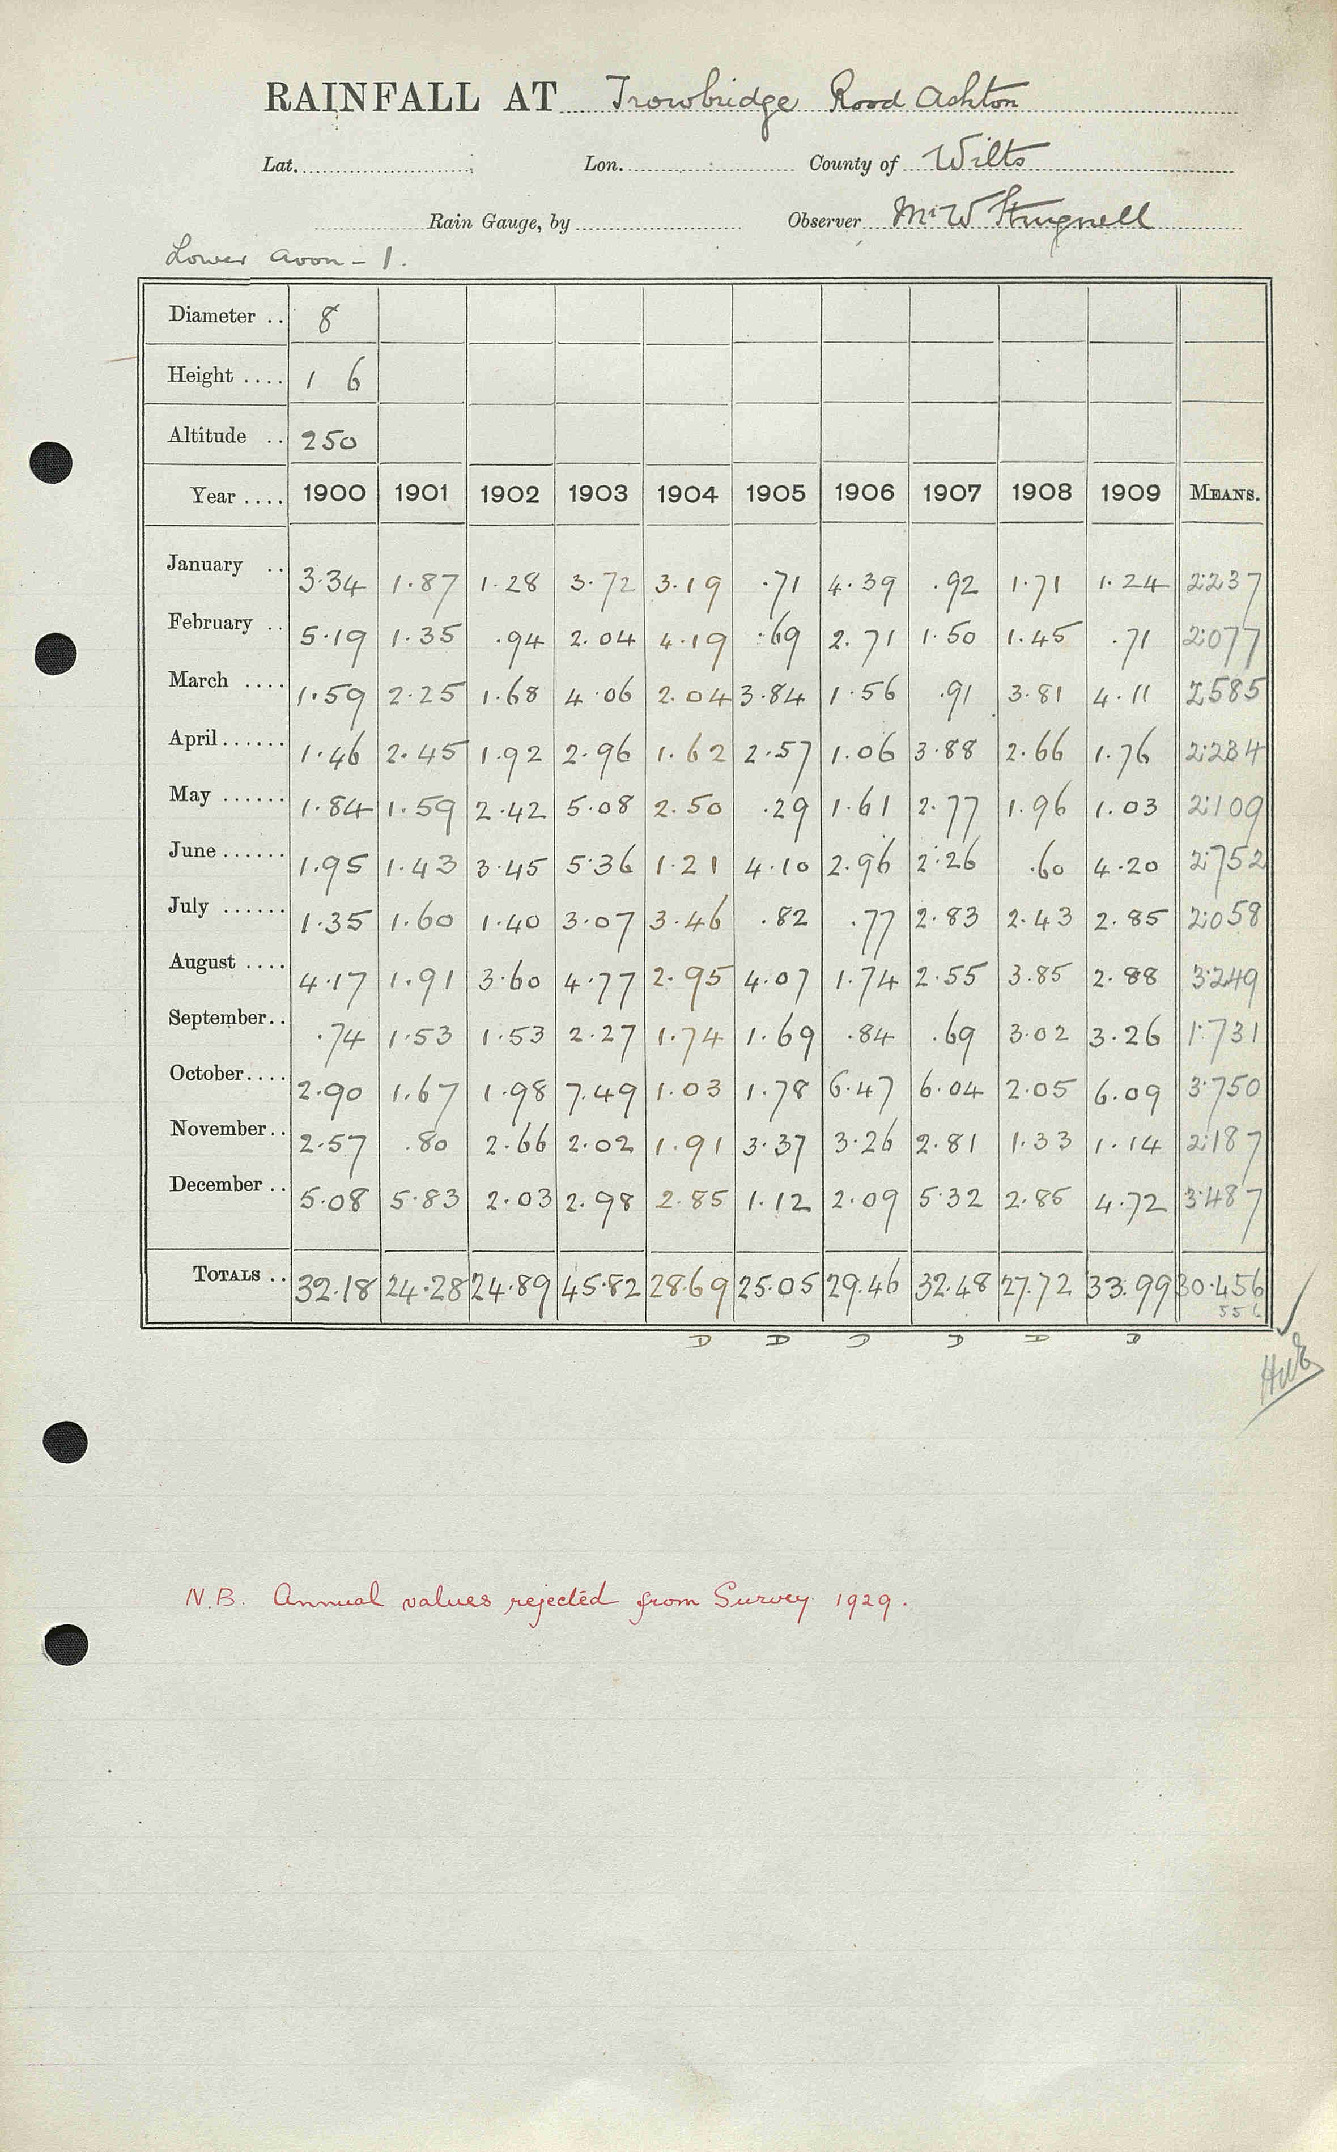 RAINFALL AT Trowbridge Rood Ashton
Lat. Lon. County of Wilts
Rain Gauge, by Observer Mr W Strugnell
Lower Avon - 1.
Diameter .. 8
Height .... 1 6
Altitude .. 250
Year .... 1900 1901 1902 1903 1904 1905 1906 1907 1908 1909 MEANS.
January .. 3.34 1.87 1.28 3.72 3.19 .71 4.39 .92 1.71 1.24 2.237
February .. 5.19 1.35 .94 2.04 4.19 .69 2.71 1.50 1.45 .71 2.077
March .... 1.59 2.25 1.68 4.06 2.04 3.84 1.56 .91 3.81 4.11 2.585
April ...... 1.46 2.45 1.92 2.96 1.62 2.57 1.06 3.88 2.66 1.76 2.234
May ...... 1.84 1.59 2.42 5.08 2.50 .29 1.61 2.77 1.96 1.03 2.109
June ...... 1.95 1.43 3.45 5.36 1.21 4.10 2.96 2.26 .60 4.20 2.752
July ...... 1.35 1.60 1.40 3.07 3.46 .82 .77 2.83 2.43 2.85 2.058
August .... 4.17 1.91 3.60 4.77 2.95 4.07 1.74 2.55 3.85 2.88 3.249
September .. .74 1.53 1.53 2.27 1.74 1.69 .84 .69 3.02 3.26 1.731
October .... 2.90 1.67 1.98 7.49 1.03 1.78 6.47 6.04 2.05 6.09 3.750
November .. 2.57 .80 2.66 2.02 1.91 3.37 3.26 2.81 1.33 1.14 2.187
December .. 5.08 5.83 2.03 2.98 2.85 1.12 2.09 5.32 2.85 4.72 3.487
TOTALS .. 32.18 24.28 24.89 45.82 28.69 25.05 29.46 32.48 27.72 33.99 30.456
D D D D D D
N.B. Annual values rejected from Survey 1929.